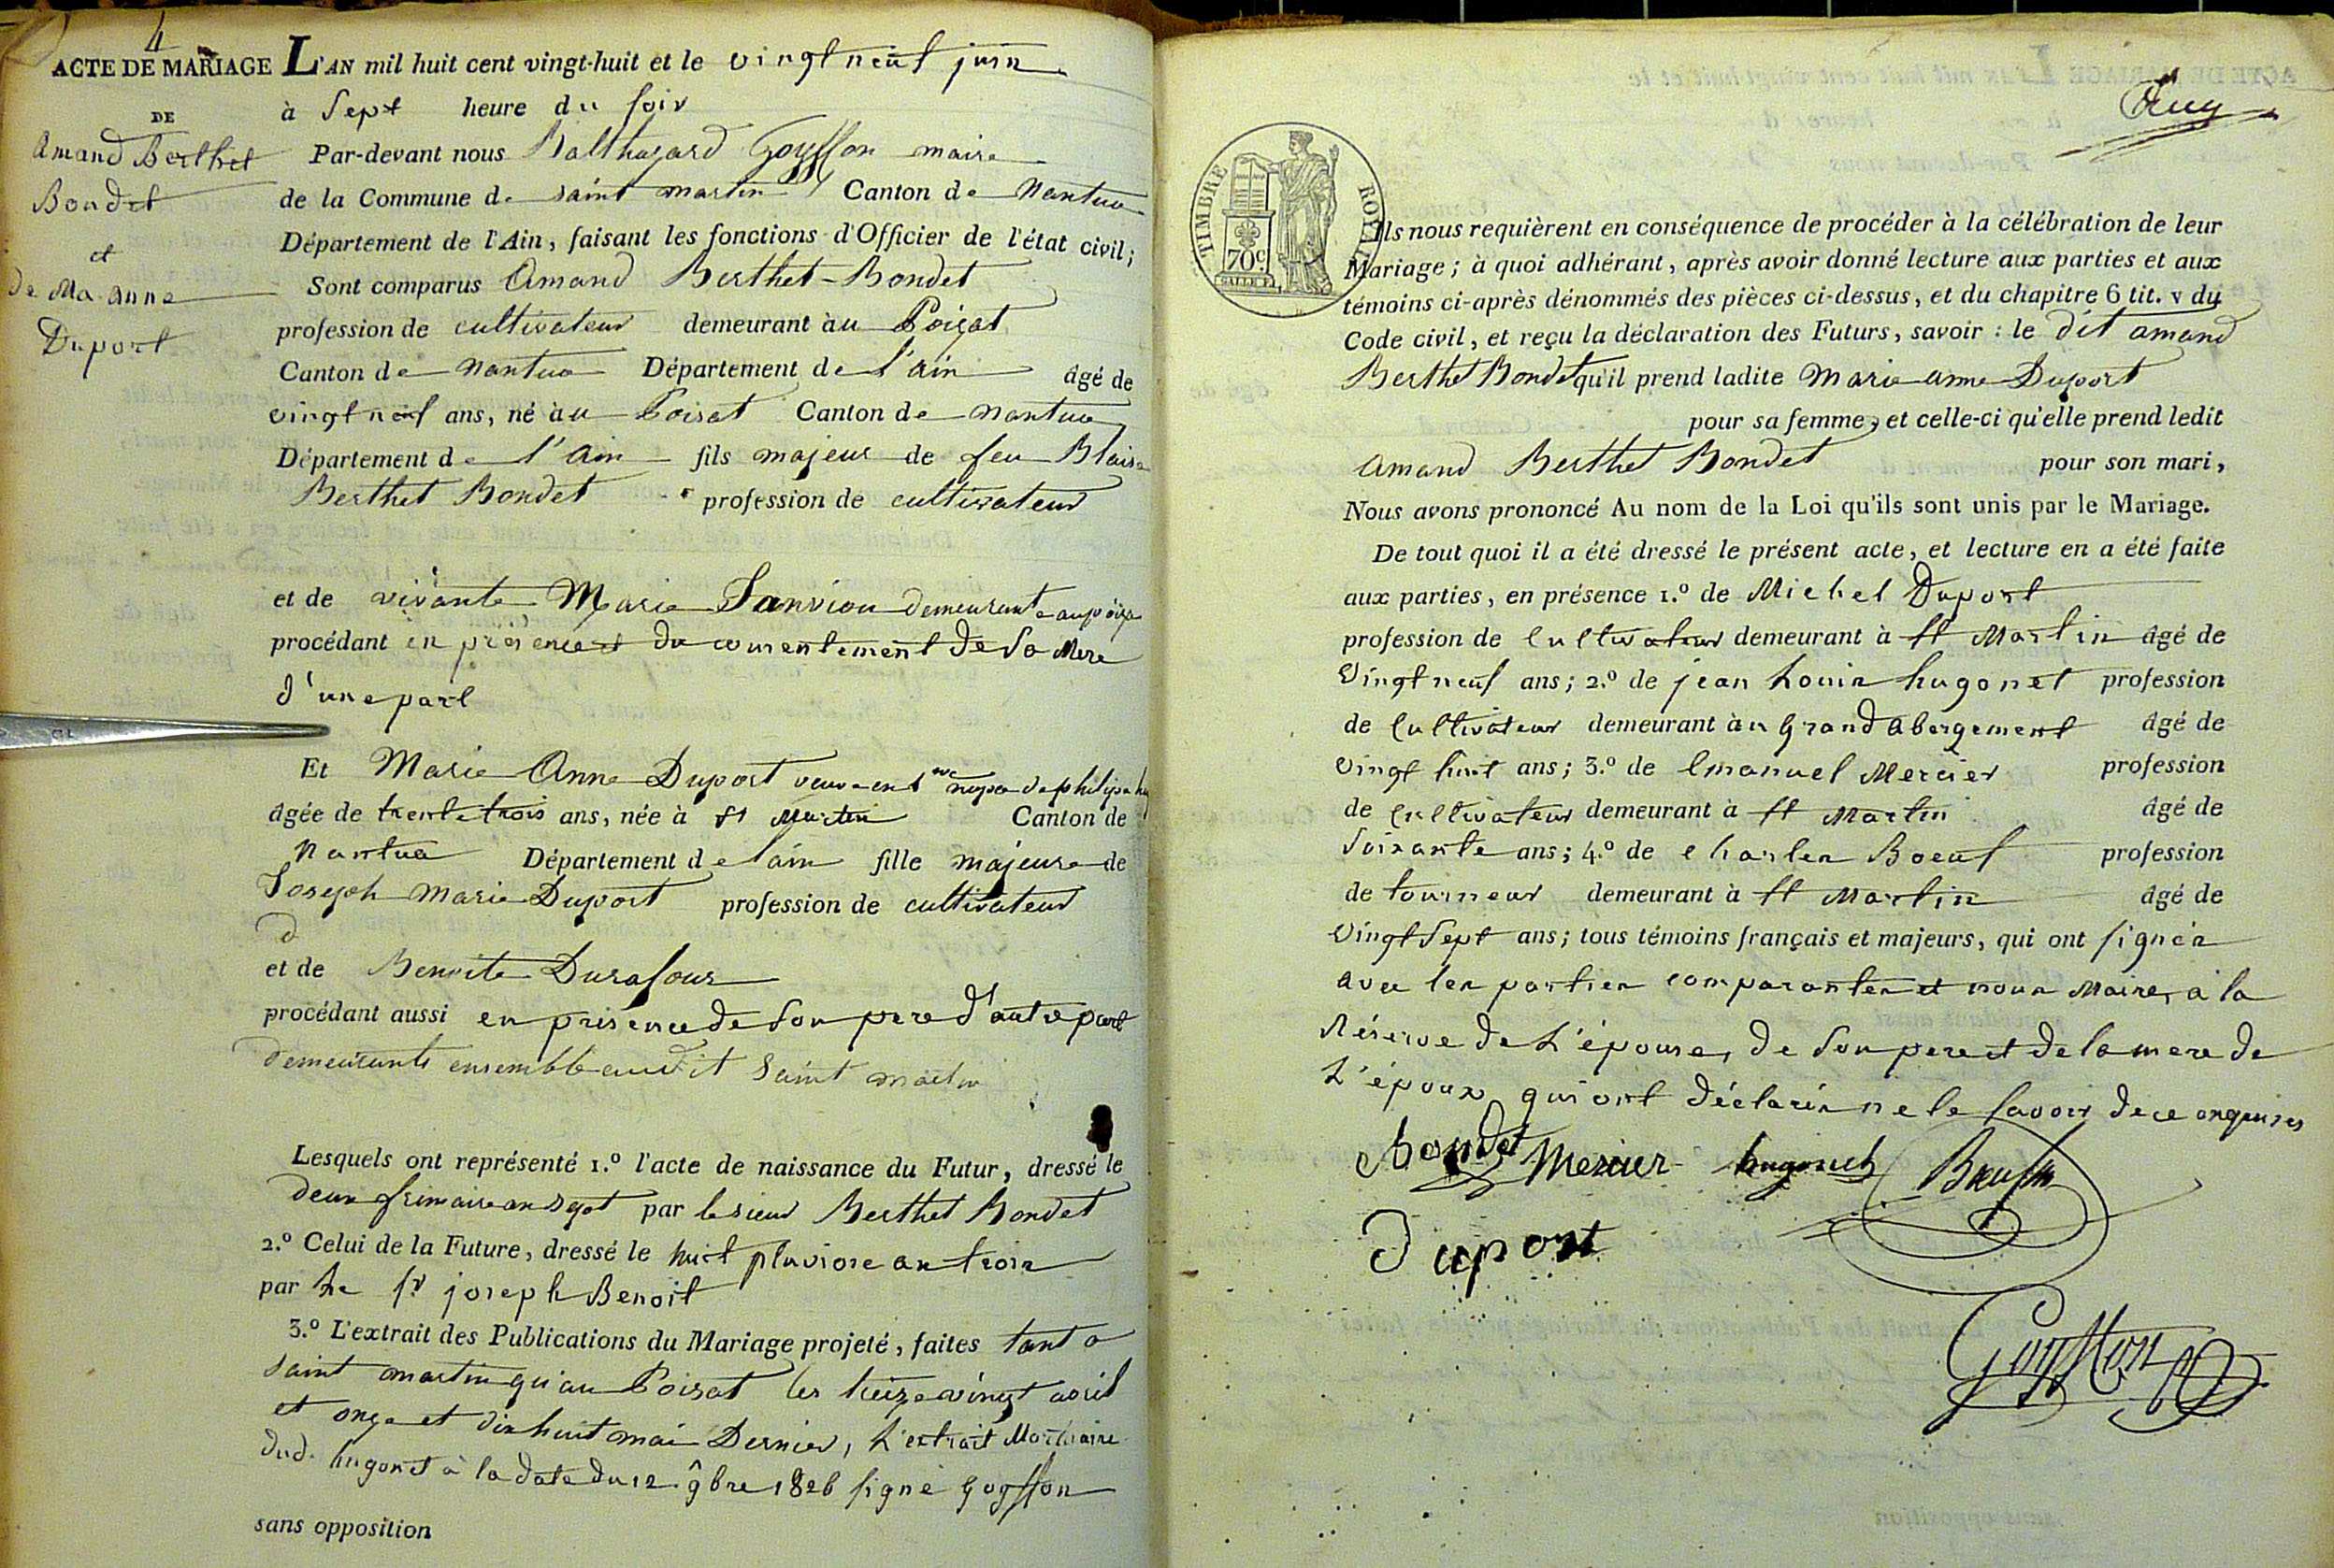 4
ACTE DE MARIAGE
DE
Amand Berthet
Bondet
et
de Ma. Anne
Duport
L'AN mil huit cent vingt-huit et le vingt neuf juin
à Sept heure du soir
Par-devant nous Balthazard Goyffon maire
de la Commune de saint martin Canton de Nantua
Département de l'Ain, faisant les fonctions d'Officier de l'état civil;
Sont comparus Amand Berthet-Bondet
profession de cultivateur demeurant à au Poizat
Canton de Nantua Département de l'ain âgé de
vingt neuf ans, né à au Poisat Canton de Nantua
Département de l'Ain fils majeur de feu Blaise
Berthet Bondet profession de cultivateur
et de vivante Marie Janviou demeurante au poiza
procédant en présence et du consentement de sa Mere
d'une part
Et Marie Anne Duport veuve en 1re nopce de philipe
âgée de trente trois ans, née à St Martin Canton de
Nantua Département de lain fille majeure de
Joseph Marie Duport profession de cultivateur
d
et de Benoite Durafour
procédant aussi en présence de son pere d'autre part
demeurants ensemble audit Saint martin
Lesquels ont représenté 1.º l'acte de naissance du Futur, dressé le
deux frimaire an sept par le sieur Berthet Bondet
2.º Celui de la Future, dressé le huit pluviose an trois
par Le Sr joseph Benoit
3.º L'extrait des Publications du Mariage projeté, faites tant a
saint martin qu'au Poisat les treize vingt avril
et onze et dix huit mai Dernier, L'extrait Mortuaire
dud. hugonet à la date du 12 9bre 1826 signé goyffon
sans opposition
TIMBRE ROYAL
70c
Ils nous requièrent en conséquence de procéder à la célébration de leur
Mariage; à quoi adhérant, après avoir donné lecture aux parties et aux
témoins ci-après dénommés des pièces ci-dessus, et du chapitre 6 tit. v du
Code civil, et reçu la déclaration des Futurs, savoir : le dit amand
Berthet Bondet qu'il prend ladite Marie anne Duport
pour sa femme, et celle-ci qu'elle prend ledit
Amand Berthet Bondet pour son mari,
Nous avons prononcé Au nom de la Loi qu'ils sont unis par le Mariage.
De tout quoi il a été dressé le présent acte, et lecture en a été faite
aux parties, en présence 1.º de Michel Duport
profession de Cultivateur demeurant à St Martin âgé de
Vingt neuf ans; 2.º de jean Louis hugonet profession
de Cultivateur demeurant à au Grand Abergement âgé de
vingt huit ans; 3.º de Emanuel Mercier profession
de Cultivateur demeurant à St Martin âgé de
Soixante ans; 4.º de Charles Boeuf profession
de tourneur demeurant à St Martin âgé de
Vingt Sept ans; tous témoins français et majeurs, qui ont signés
avec les parties comparantes et nous Maire, à la
Réserve de L'épouse, de son pere et de la mere de
L'époux qui ont déclarés ne le savoir de ce enquises
Bondet Mercier hugonet Boeuf
Duport
Goyffon